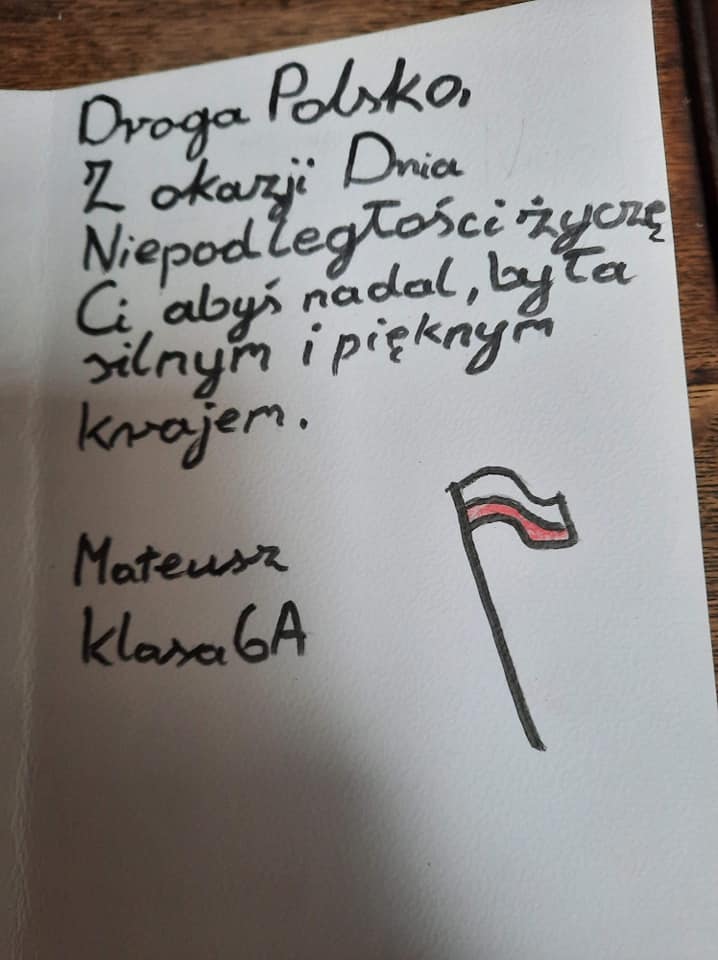 Droga Polsko,
Z okazji Dnia
Niepodległości życzę
Ci abyś nadal, była
silnym i pięknym
krajem.
Mateusz
klasa 6A